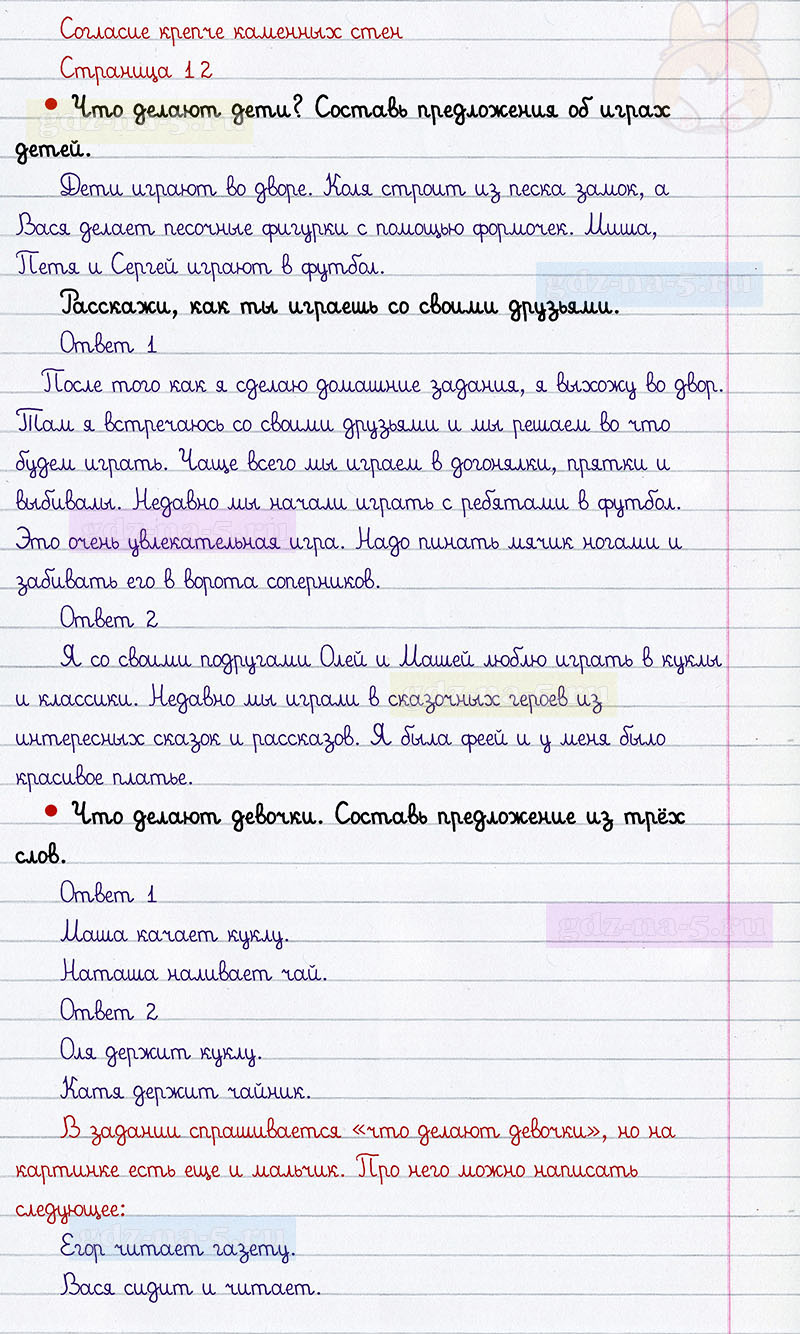 Согласие крепче каменных стен
Страница 12
• Что делают дети? Составь предложения об играх
gdz-na-5.ru
детей.
Дети играют во дворе. Коля строит из песка замок, а
Вася делает песочные фигурки с помощью формочек. Миша,
Петя и Сергей играют в футбол.
gdz-na-5.ru
Расскажи, как ты играешь со своими друзьями.
Ответ 1
После того как я сделаю домашние задания, я выхожу во двор.
Там я встречаюсь со своими друзьями и мы решаем во что
будем играть. Чаще всего мы играем в догонялки, прятки и
выбивалы. Недавно мы начали играть с ребятами в футбол.
gdz-na-5.ru
Это очень увлекательная игра. Надо пинать мячик ногами и
забивать его в ворота соперников.
Ответ 2
Я со своими подругами Олей и Машей люблю играть в куклы
и классики. Недавно мы играли в сказочных героев из
gdz-na-5.ru
интересных сказок и рассказов. Я была феей и у меня было
красивое платье.
• Что делают девочки. Составь предложение из трёх
слов.
Ответ 1
Маша качает куклу.
gdz-na-5.ru
Наташа наливает чай.
Ответ 2
Оля держит куклу.
Катя держит чайник.
В задании спрашивается «что делают девочки», но на
картинке есть еще и мальчик. Про него можно написать
следующее:
gdz-na-5.ru
Егор читает газету.
Вася сидит и читает.